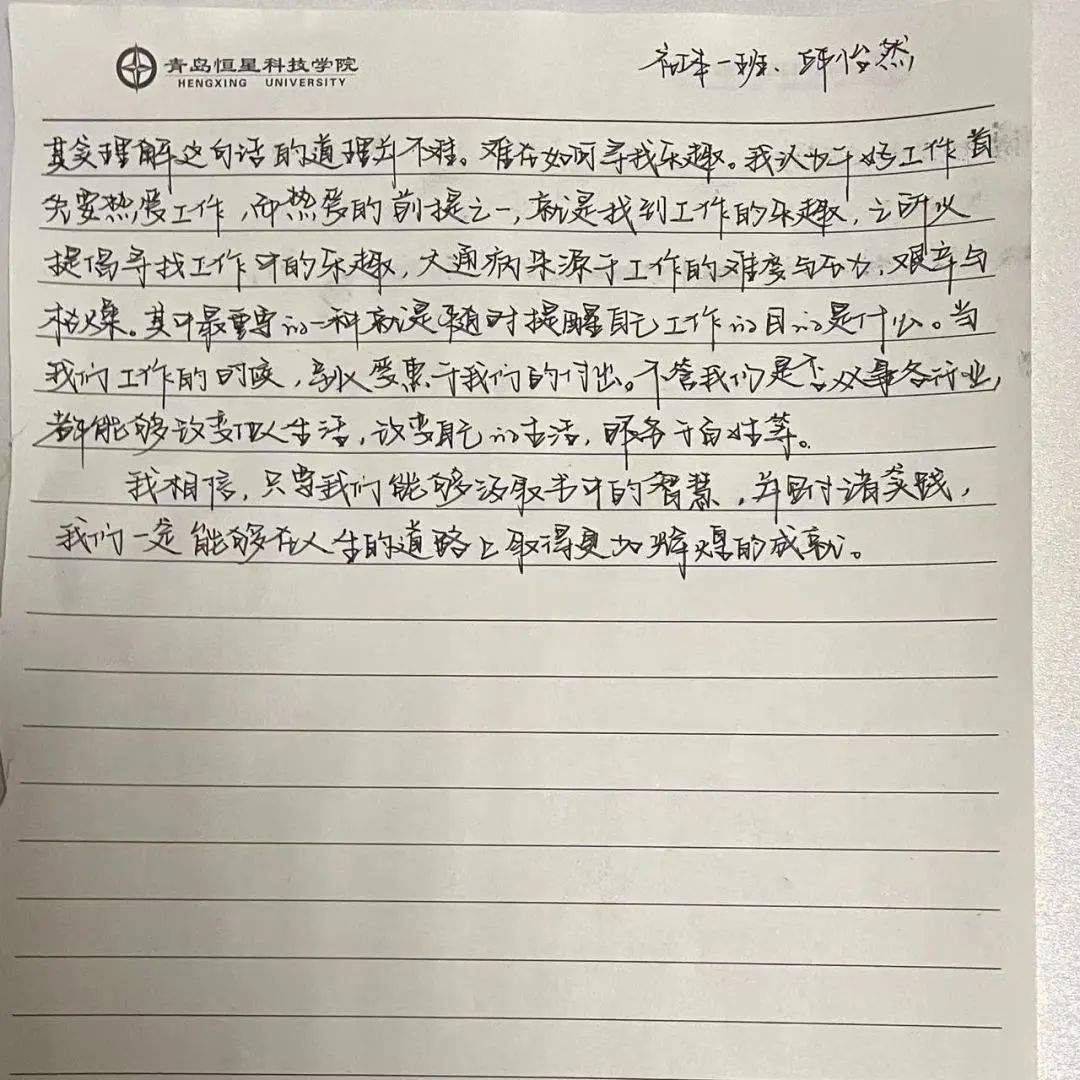 青岛恒星科技学院
HENGXING UNIVERSITY
本一班、怡然
其实理解这句话的道理并不难。难在如何寻找乐趣。我认为干好工作首
先要热爱工作，而热爱的前提之一，就是找到工作的乐趣，之所以
提倡寻找工作中的乐趣，大通病来源于工作的难度与压力，艰辛与
枯燥。其中最重要的一种就是随时提醒自己工作的目的是什么。当
我们工作的时候，受惠于我们的付出。不管我们是否从事各行业，
都能够改变他人生活，改变自己的生活，服务于百姓等。
我相信，只要我们能够汲取书中的智慧，并且付诸实践，
我们一定能够在人生的道路上取得更加辉煌的成就。